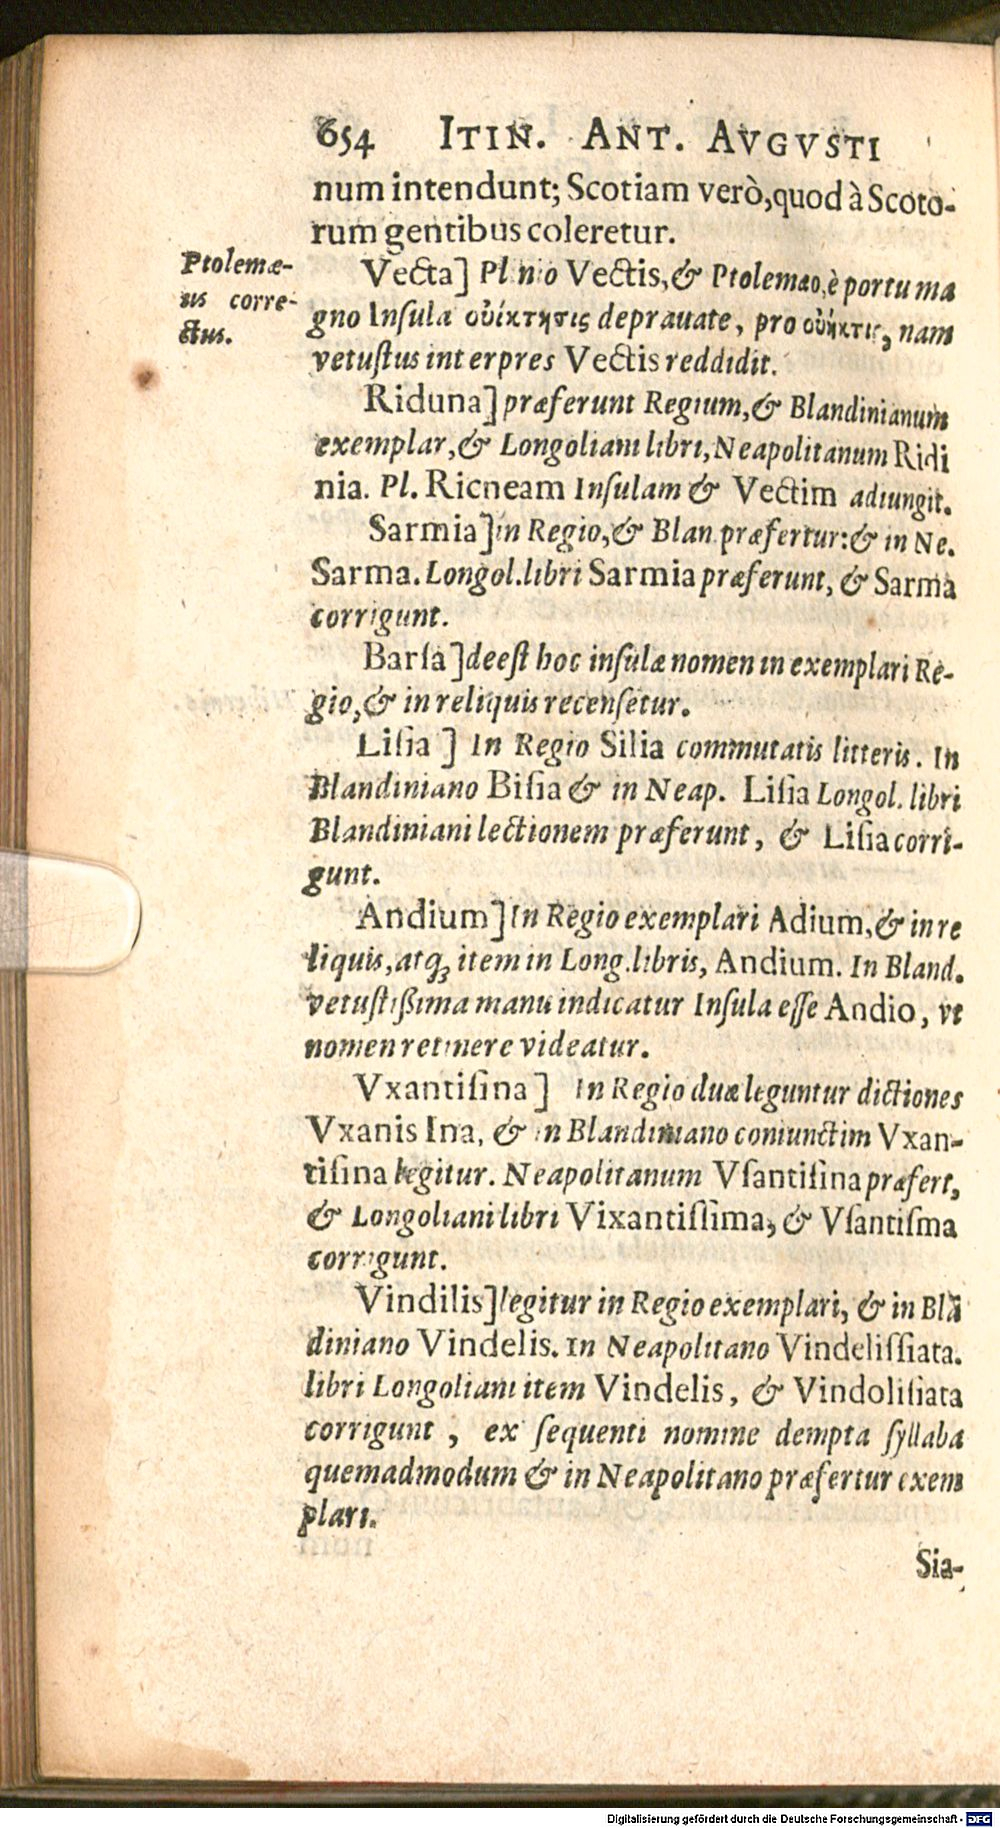 654 ITIN. ANT. AVGVSTI
num intendunt; Scotiam verò, quod à Scoto-
rum gentibus coleretur.
Ptolemæ-
us corre-
ctus.
Vecta] Plinio Vectis, & Ptolemæo, è portu ma
gno Insula οὐίκτησις deprauate, pro οὐήκτις, nam
vetustus interpres Vectis reddidit.
Riduna] præferunt Regium, & Blandinianum
exemplar, & Longoliani libri, Neapolitanum Ridi
nia. Pl. Ricneam Insulam & Vectim adiungit.
Sarmia] in Regio, & Blan. præfertur: & in Ne.
Sarma. Longol. libri Sarmia præferunt, & Sarma
corrigunt.
Barsa] deest hoc insulæ nomen in exemplari Re-
gio, & in reliquis recensetur.
Lisia ] In Regio Silia commutatis litteris. In
Blandiniano Bisia & in Neap. Lisia Longol. libri
Blandiniani lectionem præferunt, & Lisia corri-
gunt.
Andium] In Regio exemplari Adium, & in re
liquis, atq; item in Long. libris, Andium. In Bland.
vetustißima manu indicatur Insula esse Andio, vt
nomen retinere videatur.
Vxantisina ] In Regio duæ leguntur dictiones
Vxanis Ina, & in Blandiniano coniunctim Vxan-
tisina legitur. Neapolitanum Vsantisina præfert,
& Longoliani libri Vixantissima, & Vsantisma
corrigunt.
Vindilis] legitur in Regio exemplari, & in Blā
diniano Vindelis. In Neapolitano Vindelissiata.
libri Longoliani item Vindelis, & Vindolisiata
corrigunt, ex sequenti nomine dempta syllaba
quemadmodum & in Neapolitano præfertur exem
plari.
Sia-
Digitalisierung gefördert durch die Deutsche Forschungsgemeinschaft - DFG